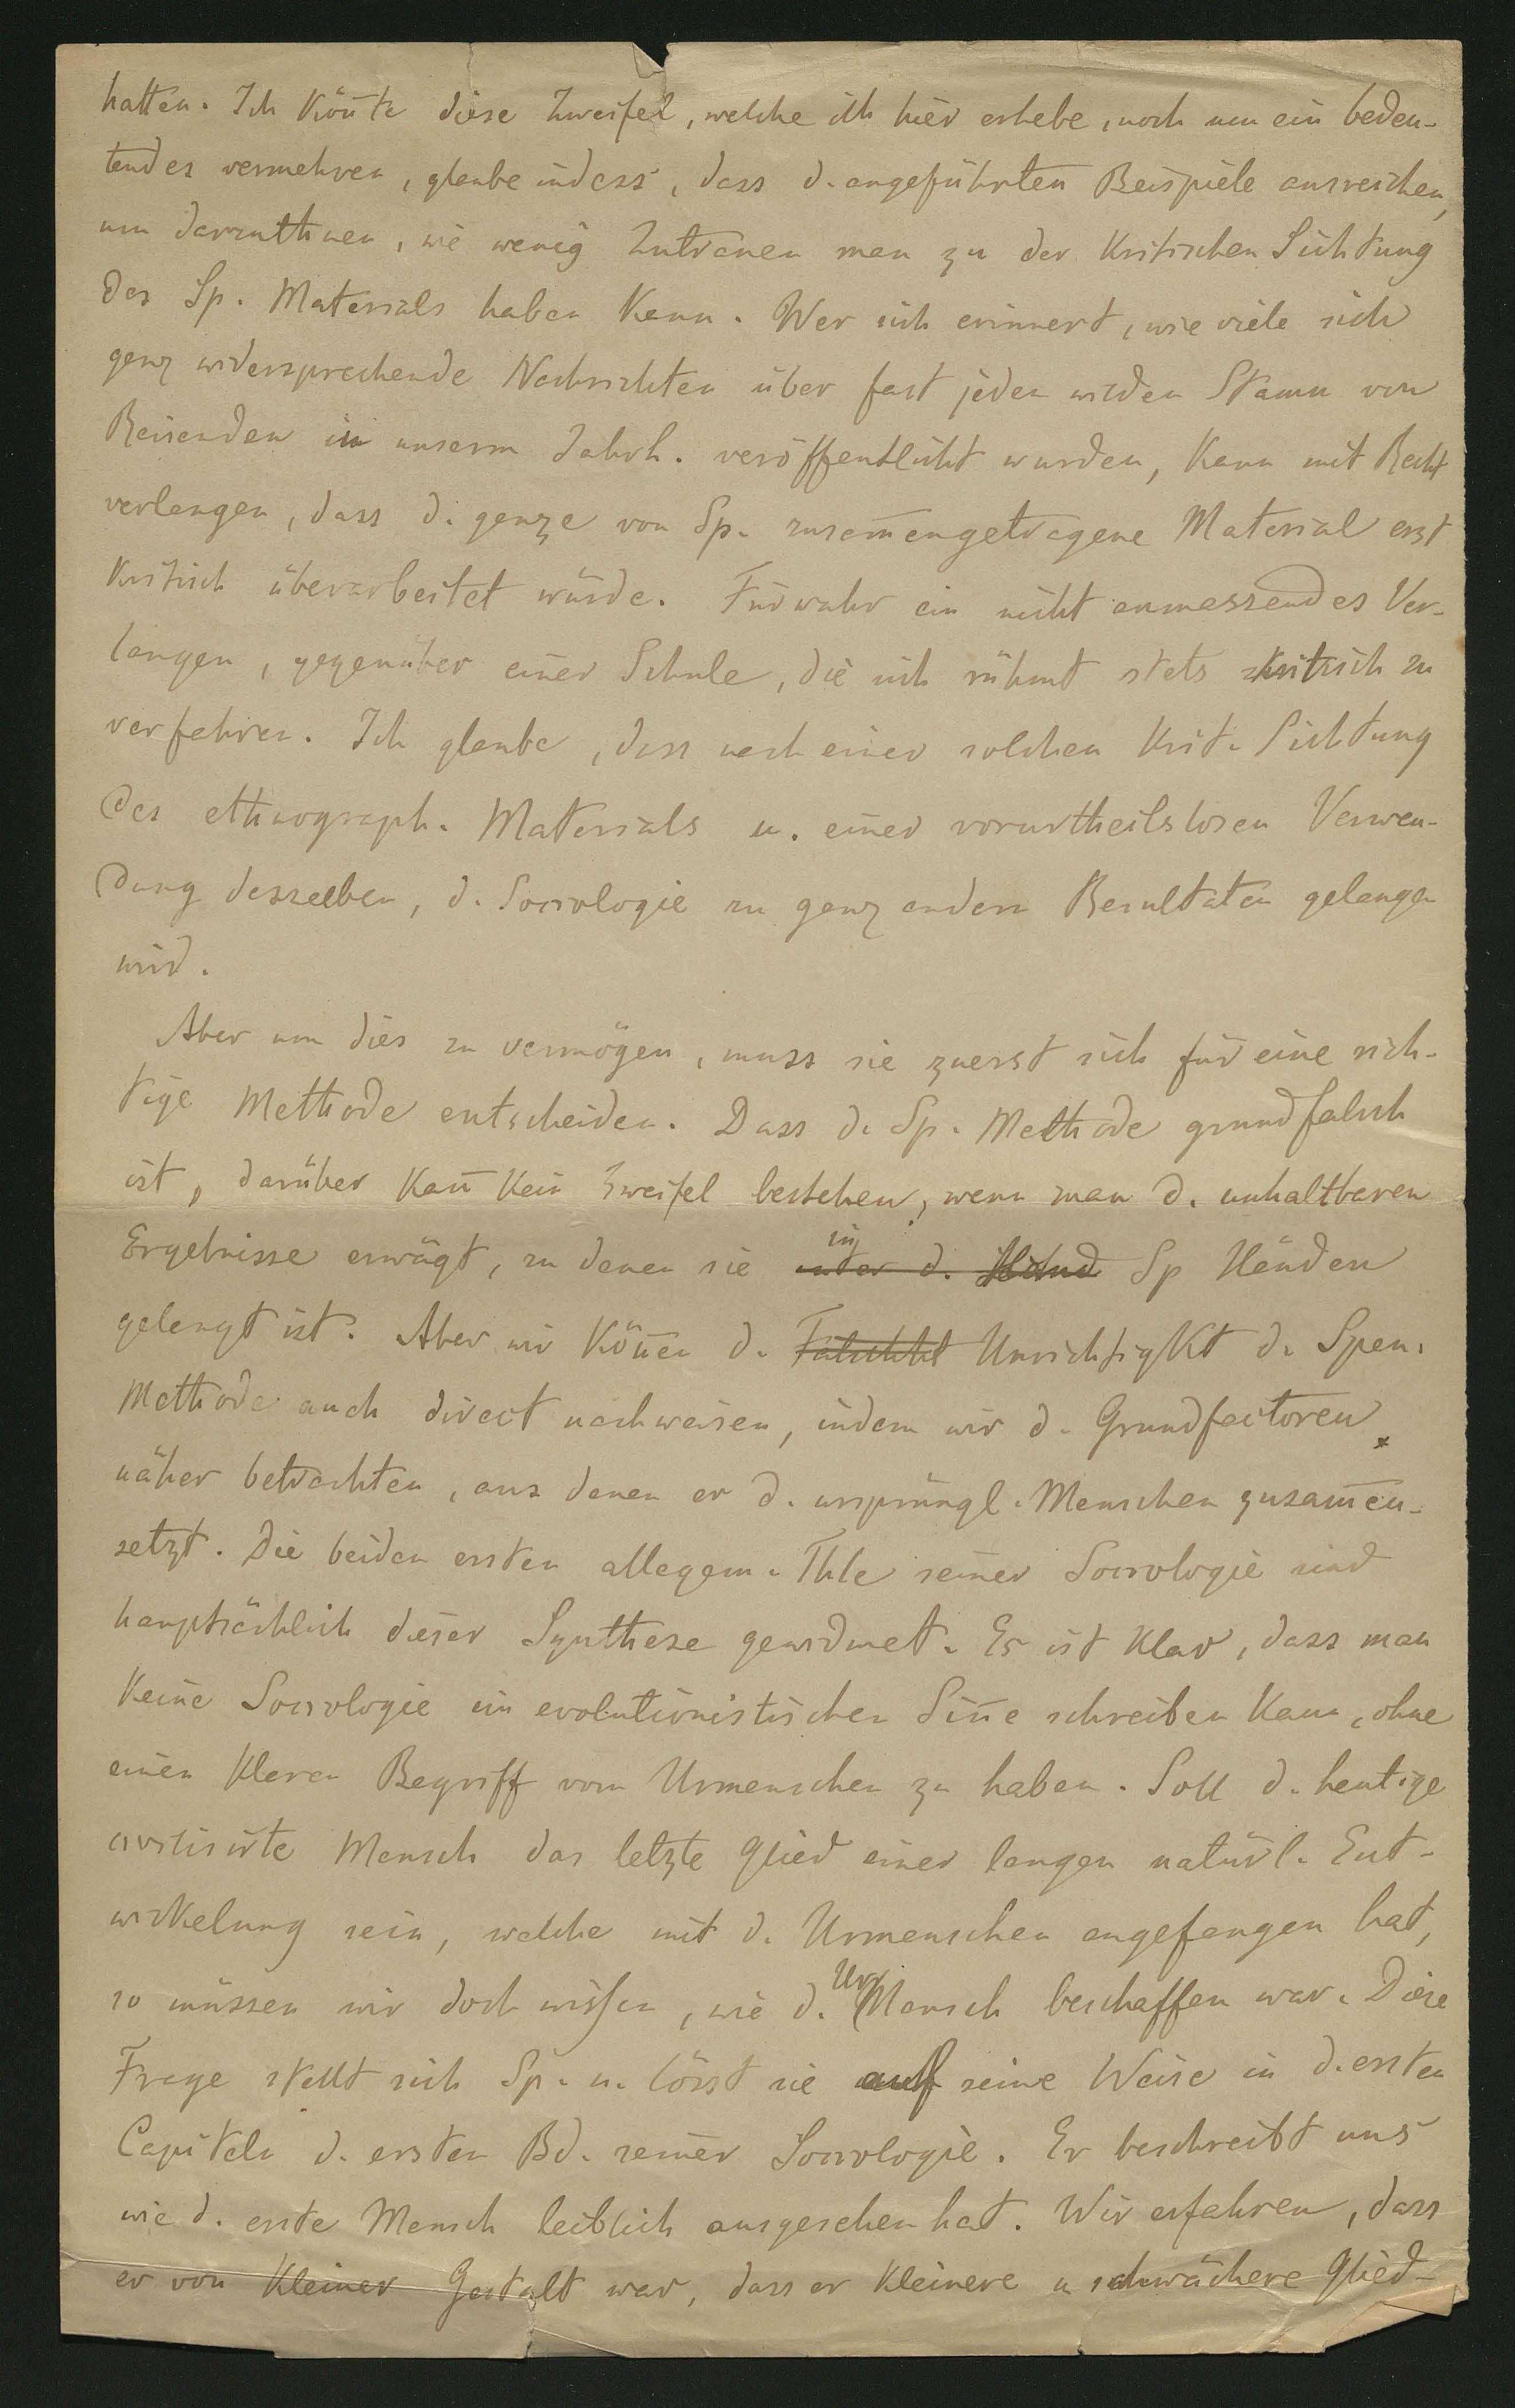 hatten. Ich köñte diese Zweifel, welche ich hier erhebe, noch um ein bedeu-
tendes vermehren, glaube indess, dass d. angeführten Beispiele ausreichen,
um darzuthuen, wie wenig Zutrauen man zu der kritischen Sichtung
des Sp. Materials haben kann. Wer sich erinnert, wie viele sich
ganz widersprechende Nachrichten über fast jeden wilden Stamm von
Reisenden in unserm Jahrh. veröffentlicht wurden, kann mit Recht
verlangen, dass d. ganze von Sp. zusam̄engetragene Material erst
kritisch überarbeitet würde. Fürwahr ein nicht anmassendes Ver-
langen, gegenüber einer Schule, die sich rühmt stets kritisch zu
verfahren. Ich glaube, dass nach einer solchen krit. Sichtung
des ethnograph. Materials u. einer vorurtheilslosen Verwen-
dung desselben, d. Sociologie zu ganz andern Resultaten gelangen
wird.
Aber um dies zu vermögen, muss sie zuerst sich für eine rich-
tige Methode entscheiden. Dass d. Sp. Methode grundfalsch
ist, darüber kañ kein Zweifel bestehen, wenn man d. unhaltbaren
Ergebnisse erwägt, zu denen sie in unter d. Hand Sp Händen
gelangt ist. Aber wir köñen d. Falschht Unrichtigkt d. Spen.
Methode auch direct nachweisen, indem wir d. Grundfactoren
näher betrachten, aus denen er d. ursprüngl. Menschen zusam̄en-
setzt. Die beiden ersten allegem. Thle seiner Sociologie sind
hauptsächlich dieser Synthese gewidmet. Es ist klar, dass man
keine Sociologie im evolutionistischen Siñe schreiben kann, ohne
einen klaren Begriff vom Urmenschen zu haben. Soll d. heutige
civilisirte Mensch das letzte Glied einer langen natürl. Ent-
wickelung sein, welche mit d. Urmenschen angefangen hat,
so müssen wir doch wissen, wie d. Ur Mensch beschaffen war. Diese
Frage stellt sich Sp. u. lösst sie auf seine Weise in d. ersten
Capiteln d. ersten Bd. seiner Sociologie. Er beschreibt uns
wie d. erste Mensch leiblich ausgesehen hat. Wir erfahren, dass
er von kleiner Gestalt war, dass er kleinere u schwächere Glied-